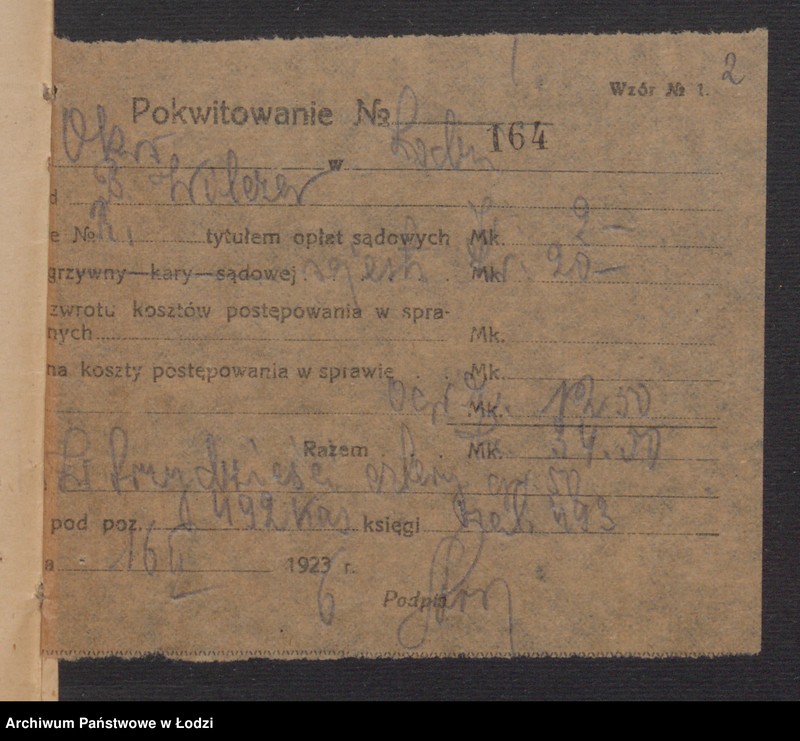 2
Wzór № 1.
Pokwitowanie № 164
Okr. w Łodzi
d
e № tytułem opłat sądowych Mk. 2 —
grzywny—kary—sądowej . rejestr. Mk. 20 —
zwrotu kosztów postępowania w spra-
nych Mk.
na koszty postępowania w sprawie . . Mk.
Mk. 12 50
Razem . . Mk. 34.50
trzydzieści cztery 50
pod poz. 492 Kas księgi 493
a 16 1923 r. 6
Podpis
Archiwum Państwowe w Łodzi